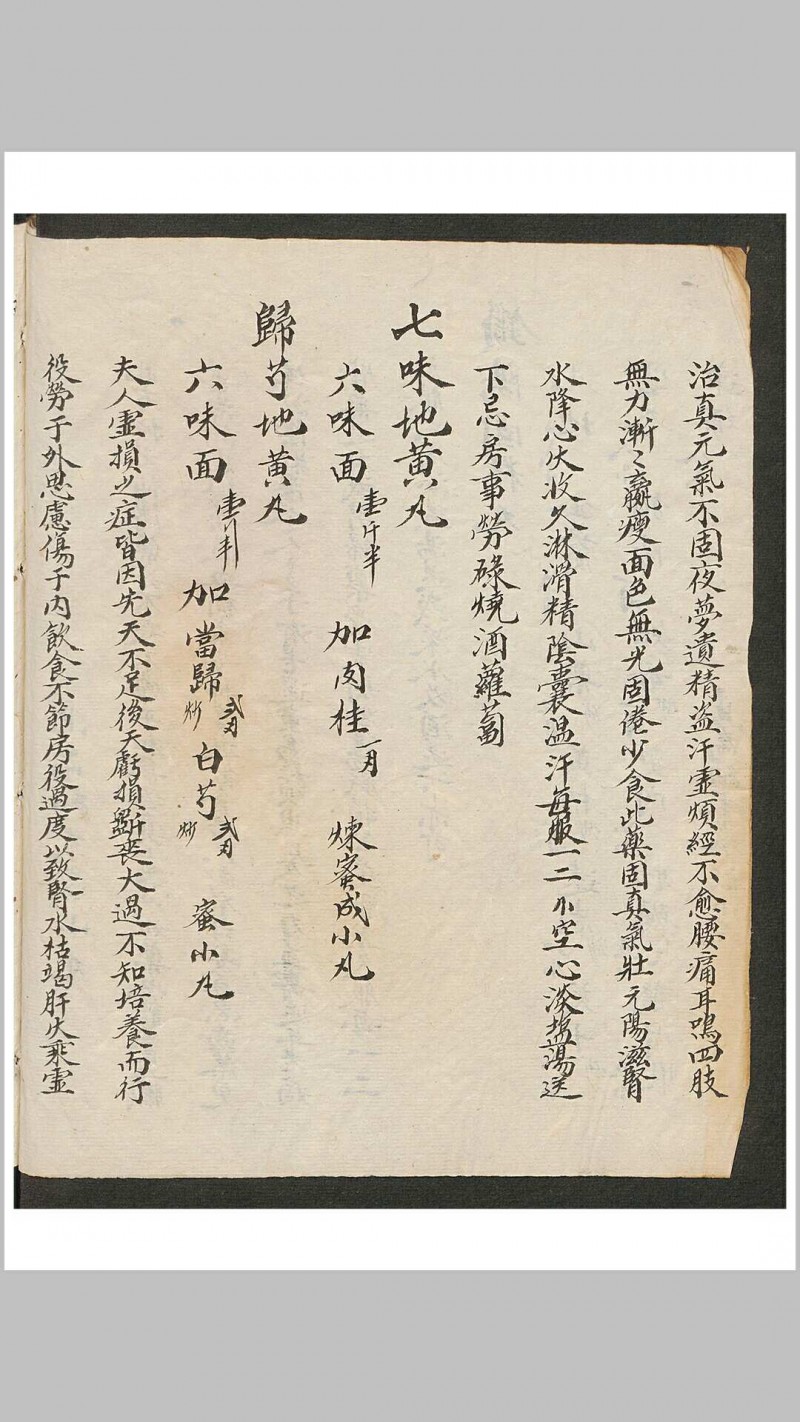 治真元氣不固夜夢遺精盗汗虛煩經不愈腰痛耳鳴四肢
無力漸々羸瘦面色無光固倦少食此藥固真氣壯元陽滋腎
水降心火收久淋滑精陰囊温汗每服一二 空心淡塩湯送
下忌房事勞碌燒酒蘿蔔
七味地黃丸
六味面 壹斤半 加肉桂 一 煉蜜成小丸
歸芍地黃丸
六味面 壹斤半 加當歸 炒 白芍 炒 蜜小丸
夫人虛損之症皆因先天不足後天虧損斲丧大過不知培養而行
役勞于外思慮傷于内飲食不節房役過度以致腎水枯竭肝火乘虛